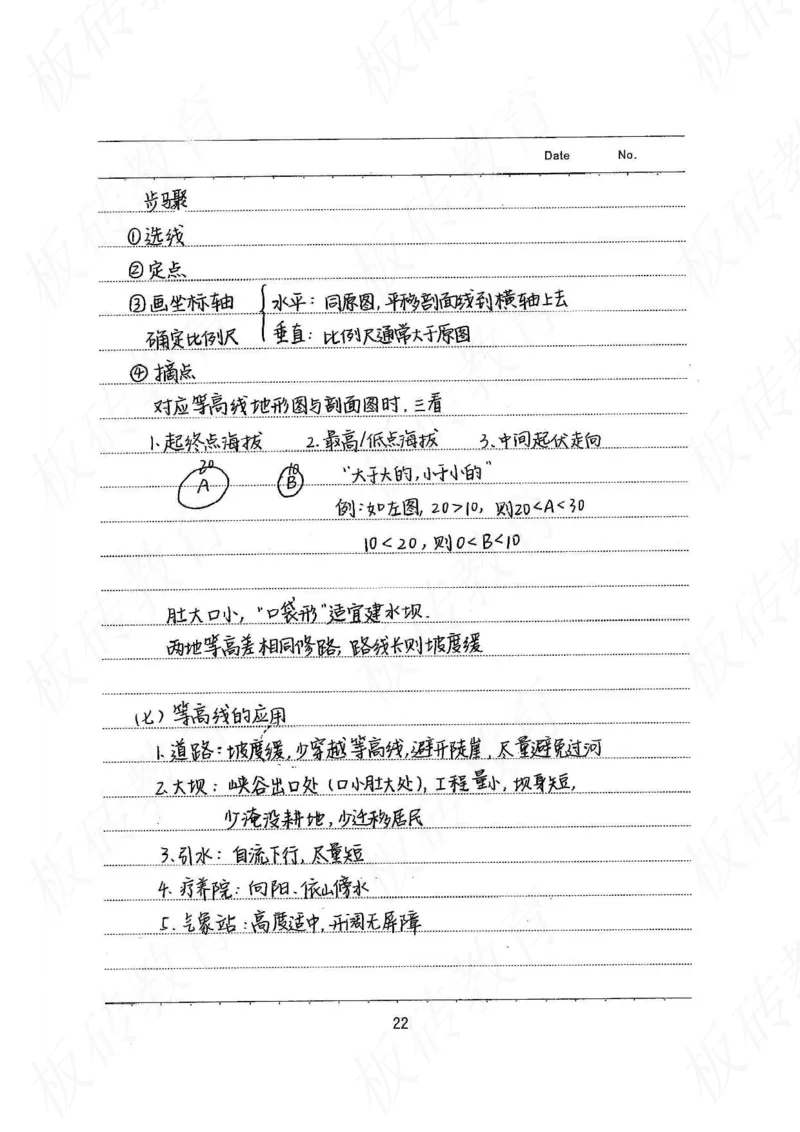 Date No.
步骤
①选线
②定点
③画坐标轴 水平：同原图，平移剖面线到横轴上去
确定比例尺 垂直：比例尺通常大于原图
④摘点
对应等高线地形图与剖面图时，三看
1.起终点海拔 2.最高/低点海拔 3.中间起伏走向
20 10 “大于大的，小于小的”
A B
例：如左图，20>10，则20<A<30
10<20，则0<B<10
肚大口小，“口袋形”适宜建水坝.
两地等高差相同修路；路线长则坡度缓
（七）等高线的应用
1.道路：坡度缓，少穿越等高线，避开陡崖，尽量避免过河
2.大坝：峡谷出口处（口小肚大处），工程量小，坝身短，
少淹没耕地，少迁移居民
3.引水：自流下行，尽量短
4.疗养院：向阳、依山傍水
5.气象站：高度适中，开阔无屏障
22
板砖教育